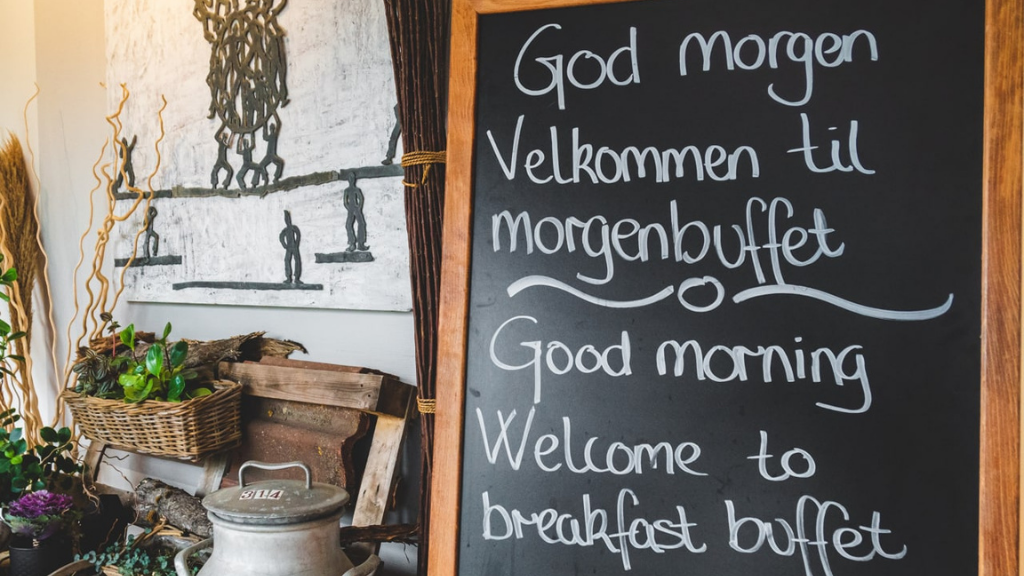 God morgen
Velkommen til
morgenbuffet
Good morning
Welcome to
breakfast buffet
314